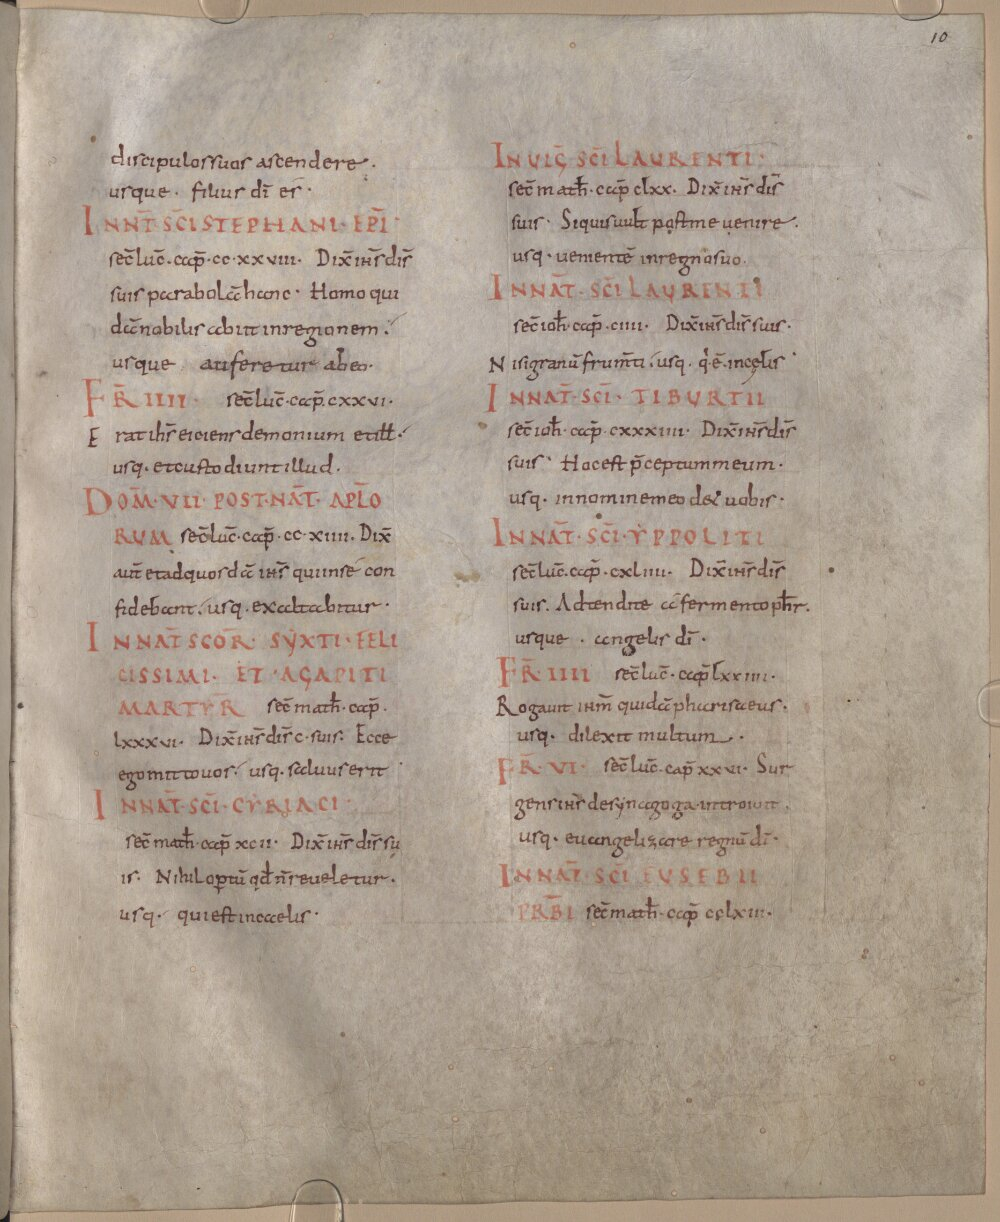 10
discipulos suos ascendere.
usque · filius dī es ·
IN NT̄ SC̄I STEPHANI · EPĪ ·
sec̄ luc̄ · cap̄ · cc · xxviii · Dix̄ ih̄s dis̄
suis parabolā hanc · Homo qui
dā nobilis abiit in regionem ·
usque auferetur ab eo ·
FR̄ IIII · sec̄ luc̄ · cap̄ · cxxvi ·
Erat ih̄s eiciens demonium et ill̄ ·
usq · et custodiunt illud ·
DOM̄ · VII · POST · NAT̄ · APL̄O
RUM sec̄ luc̄ · cap̄ · cc · xiiii · Dix̄
aut̄ et ad quosdā ih̄s qui in se con
fidebant · usq · exaltabitur ·
IN NAT̄ SCOR̄ · SYXTI · FELI
CISSIMI · ET · AGAPITI
MARTYR̄ sec̄ math̄ · cap̄ ·
lxxxvi · Dix̄ ih̄s dis̄c · suis · Ecce
ego mitto uos · usq · saluus erit
IN NAT̄ · SC̄I · CYRIACI ·
sec̄ math̄ · cap̄ xcii · Dix̄ ih̄s dis̄ su
is · Nihil optū qd̄ n̄ reueletur ·
usq · qui est in caelis ·
IN UIḠ · SC̄I LAURENTI ·
sec̄ math̄ · cap̄ clxx · Dix̄ ih̄s dis̄
suis · Si quis uult post me uenire ·
usq · uenientē in regno suo
IN NAT̄ · SC̄I LAURENTI
sec̄ ioh̄ · cap̄ · ciiii · Dix̄ ih̄s dis̄ suis ·
Nisi granū frum̄ti · usq · q̄ ē in celis
IN NAT̄ · SC̄I · TIBURTII
sec̄ ioh̄ · cap̄ · cxxxiiii · Dix̄ ih̄s dis̄
suis · Hoc est p̄ceptum meum ·
usq · in nomine meo det uobis ·
IN NAT̄ · SC̄I · YPPOLITI
sec̄ luc̄ · cap̄ · cxliiii · Dix̄ ih̄s dis̄
suis · Adtendite a fermento phr̄ ·
usque · angelis dī ·
FR̄ IIII sec̄ luc̄ · cap̄ lxxiiii ·
Rogauit ih̄m quidā pharisaeus ·
usq · dilexit multum ·
FR̄ · VI · sec̄ luc̄ · cap̄ xxvi · Sur
gens ih̄s de synagoga introiuit ·
usq · euangelizare regnū dī ·
IN NAT̄ · SC̄I EUSEBII
PRB̄I sec̄ math̄ · cap̄ cclxiii ·